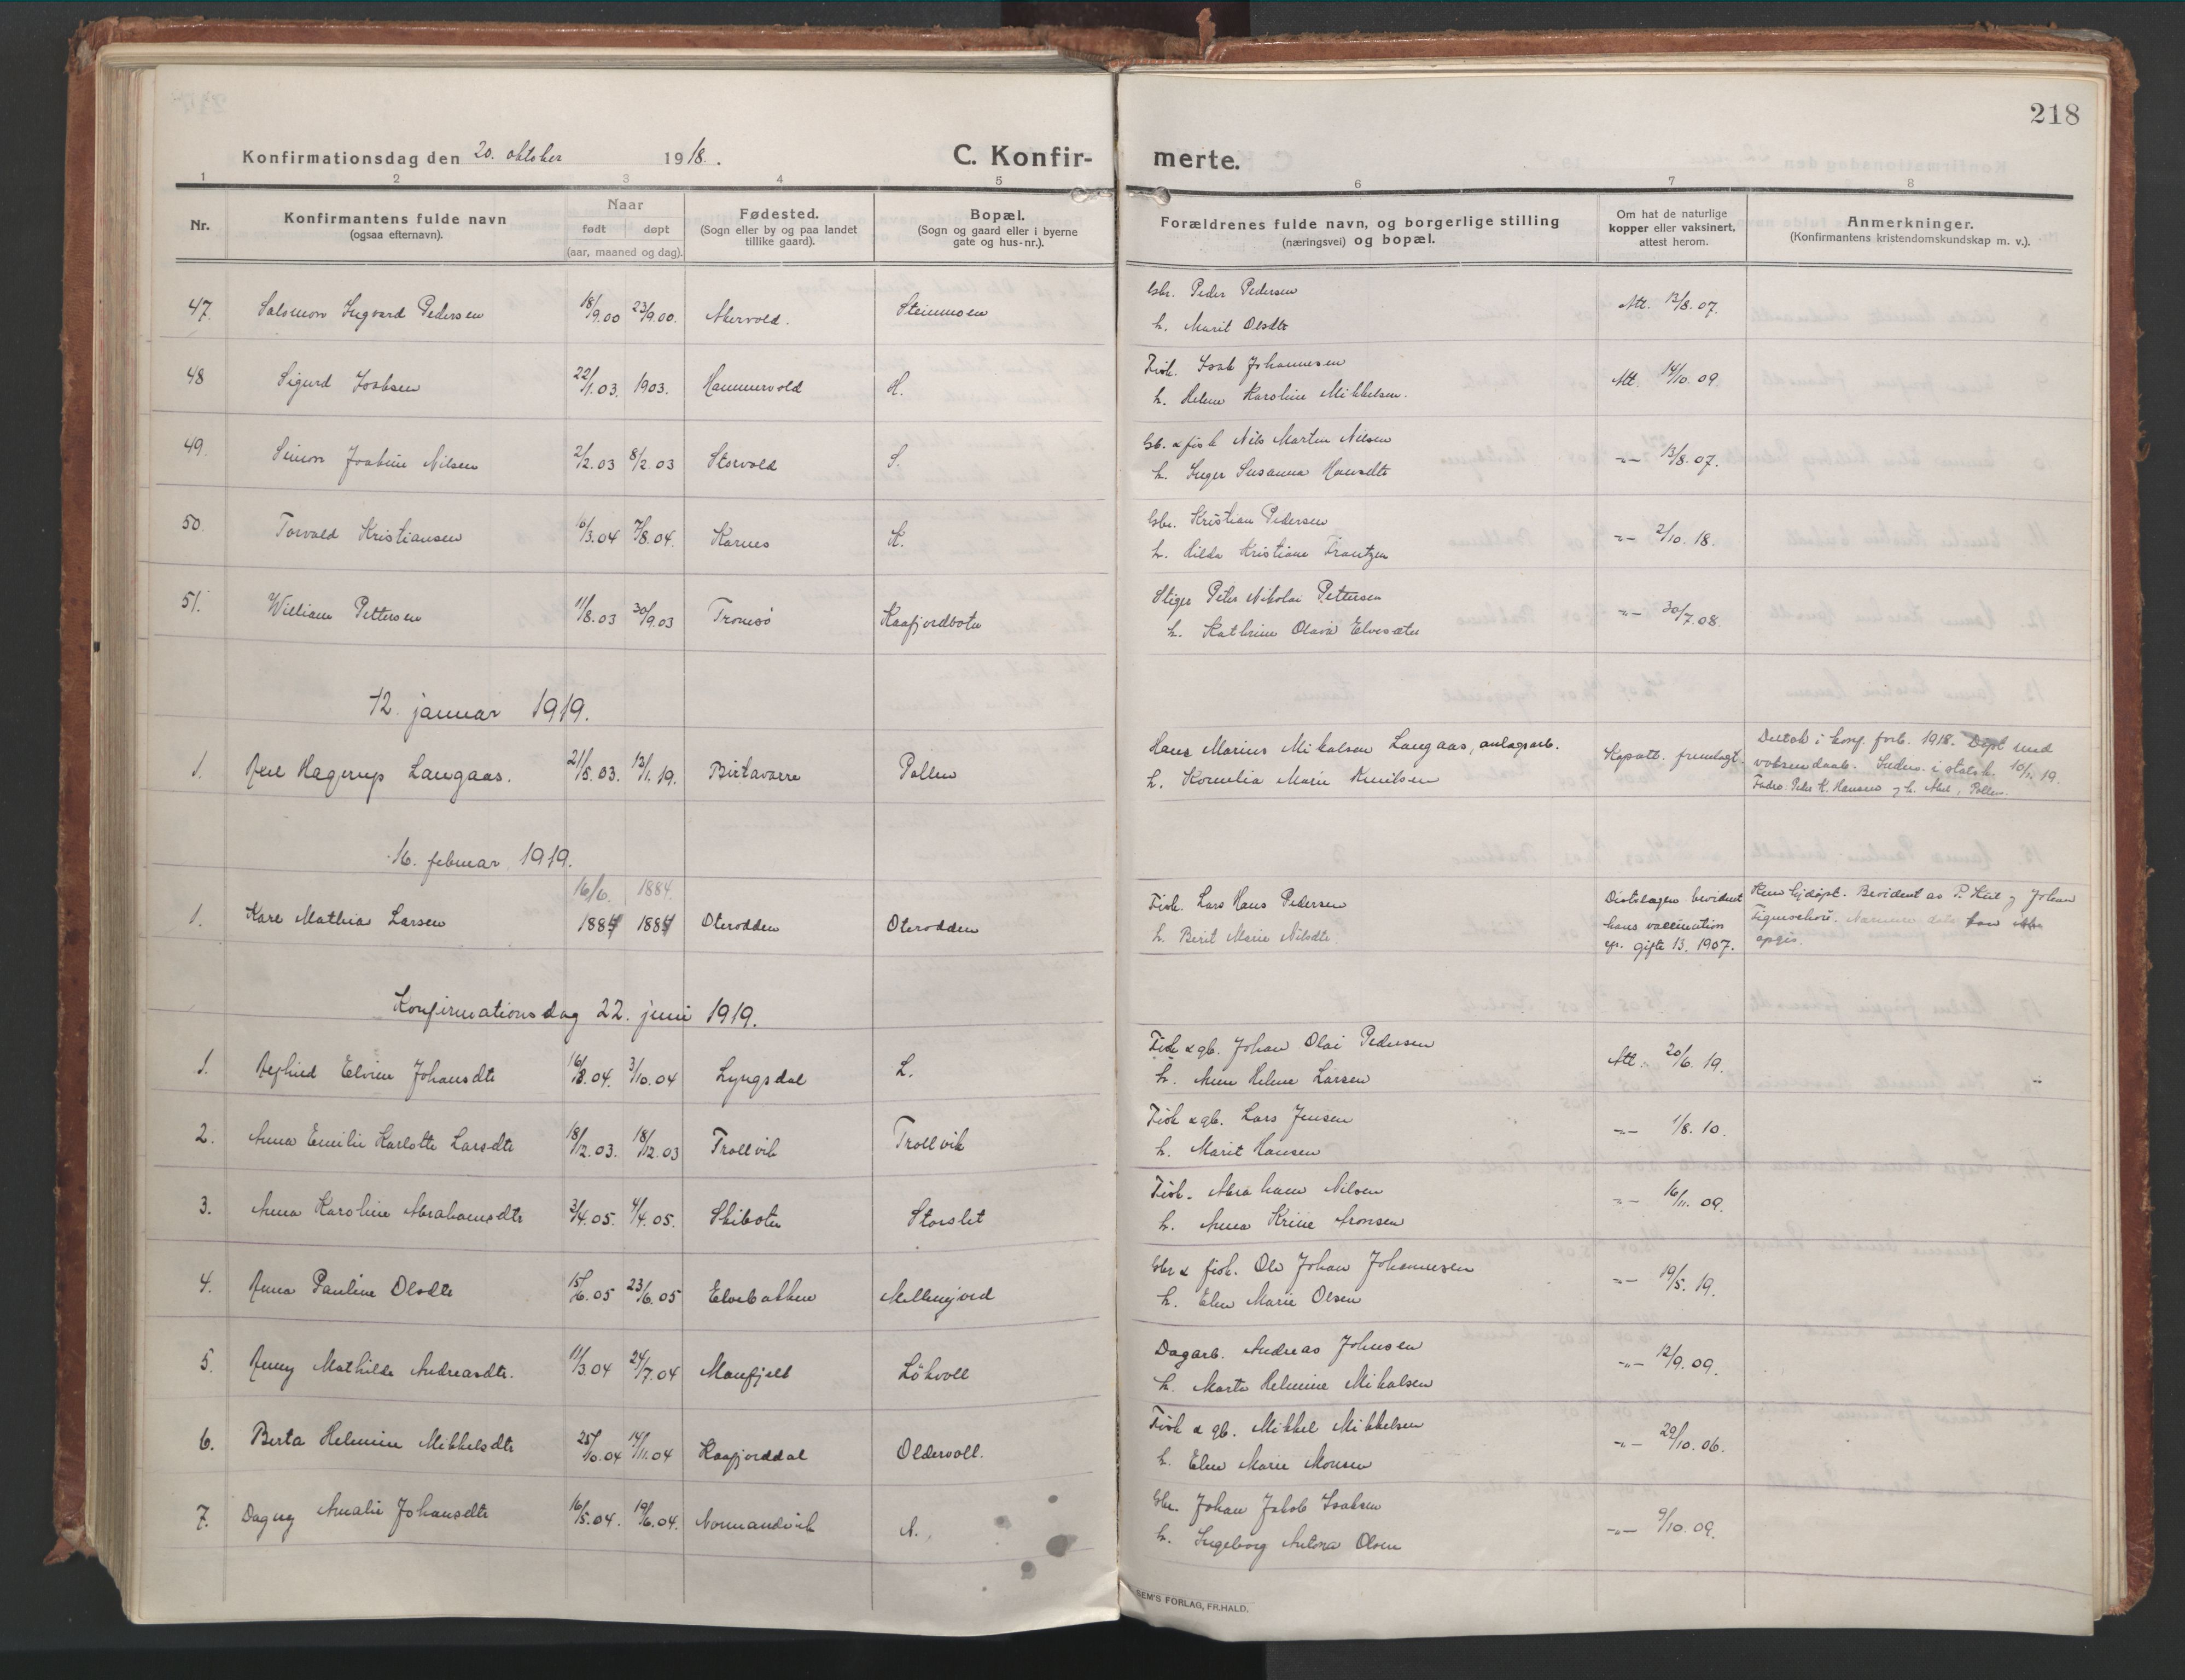 218
Konfirmationsdag den 20. oktober 1918.
C. Konfir- merte.
1 2 3 4 5 6 7 8
Nr.
Konfirmantens fulde navn
(ogsaa efternavn).
Naar
født døpt
(aar, maaned og dag).
Fødested.
(Sogn eller by og paa landet
tillike gaard).
Bopæl.
(Sogn og gaard eller i byerne
gate og hus-nr.).
Forældrenes fulde navn, og borgerlige stilling
(næringsvei) og bopæl.
Om hat de naturlige
kopper eller vaksinert,
attest herom.
Anmerkninger.
(Konfirmantens kristendomskundskap m. v.).
47. Salomon Ingvard Pedersen 18/9.00 23/9.00. Akervold. Steinmoen
Gbr. Peder Pedersen
h. Marit Olsdtr
Att. 13/8.07.
48 Sigurd Isaksen 22/1.03. 1903. Hammervold H.
Fisk. Isak Johannesen
h. Helene Karoline Mikkelsen.
Att. 14/10.09.
49. Simon Joakim Nilsen 2/2.03 8/2.03 Storvold S.
Gb. & fisk Nils Martin Nilsen
h. Inger Susanna Hansdtr
-"- 13/8.07.
50. Torvald Kristiansen 16/3.04 7/8.04. Karnes K.
Gbr. Kristian Pedersen
h. Hilda Kristiane Frantzen
-"- 2/10.18.
51. William Pettersen 11/8.03 30/9.03 Tromsø Kaafjordbotn
Stiger Peter Nikolai Pettersen
h. Kathrine Olava Elvesæter
-"- 30/7.08.
12. januar 1919.
1. Axel Hagerup Langaas. 21/5.03. 13/1.19. Birtavarre Pollen
Hans Marius Mikalsen Langaas, anlagsarb.
h. Kornelia Marie Emilsen
Kopatt. fremlagt.
Deltok i konf. forb. 1918. Døpt med
voksendaab. Indm. i statsk. 10/1.19.
Fadre: Peder K. Hansen og h. Pollen.
16. februar 1919.
16/6. 1884.
1. Kare Mathias Larsen 1884 1884 Oterodden Oterodden
Fisk. Lars Hans Pedersen
h. Berit Marie Nilsdtr.
Distslægen bevidnet
hans vaccination
gifte 13. 1907.
Hjdøpt. Bevidnet av P. og Johan
Nærmere dato kan ikke
opgis.
Konfirmationsdag 22. juni 1919.
1. Asfrid Elvine Johansdtr 16/8.04. 3/10.04 Lyngsdal L.
Fisk & gb. Johan Olai Pedersen
h. Anne Helene Larsen
Att. 20/6.19.
2. Anna Emilie Karlotte Larsdtr 18/12.03. 18/12.03 Trollvik Trollvik
Fisk & gb. Lars Jensen
h. Marit Hansen
-"- 1/8.10.
3. Anna Karoline Abrahamsdtr 3/4.05. 4/4.05. Skibotn Storslet
Fisk. Abraham Nilsen
h. Anna Krine Aronsen
-"- 16/11.09.
4. Anna Pauline Olsdtr 15/6.05 23/6.05 Elvebakken Mellenjord
Gbr & fisk. Ole Johan Johannesen
h. Elen Marie Olsen
-"- 19/5.19.
5. Anny Mathilde Andreasdtr. 11/3.04 24/7.04 Manfjeld Lökvoll
Dagarb. Andreas Johnsen
h. Marta Helmine Mikalsen
-"- 12/9.09.
6. Berta Helmine Mikkelsdtr 25/10.04 14/11.04 Kaafjorddal Oldervoll.
Fisk & gb. Mikkel Mikkelsen
h. Elen Marie Monsen
-"- 29/10.06.
7. Dagny Amalie Johansdtr 16/5.04. 19/6.04. Normandvik N.
Gbr. Johan Jakob Isaksen
h. Ingeborg Antona Olsen
-"- 9/10.09.
SEM'S FORLAG, FR.HALD.